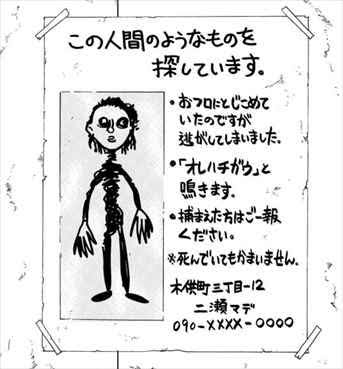 この人間のようなものを
探しています。
・おフロにとじこめて
いたのですが
逃がしてしまいました。
・「オレハチガウ」と
鳴きます。
・捕まえた方はご一報
ください。
※死んでいてもかまいません。
木供町三丁目-12
二瀬マデ
090-XXXX-0000